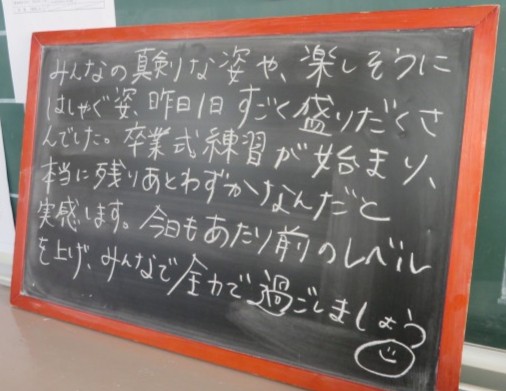 みんなの真剣な姿や、楽しそうに
はしゃぐ姿、昨日1日すごく盛りだくさ
んでした。卒業式練習が始まり、
本当に残りあとわずかなんだと
実感します。今日もあたり前のレベル
を上げ、みんなで全力で過ごしましょう